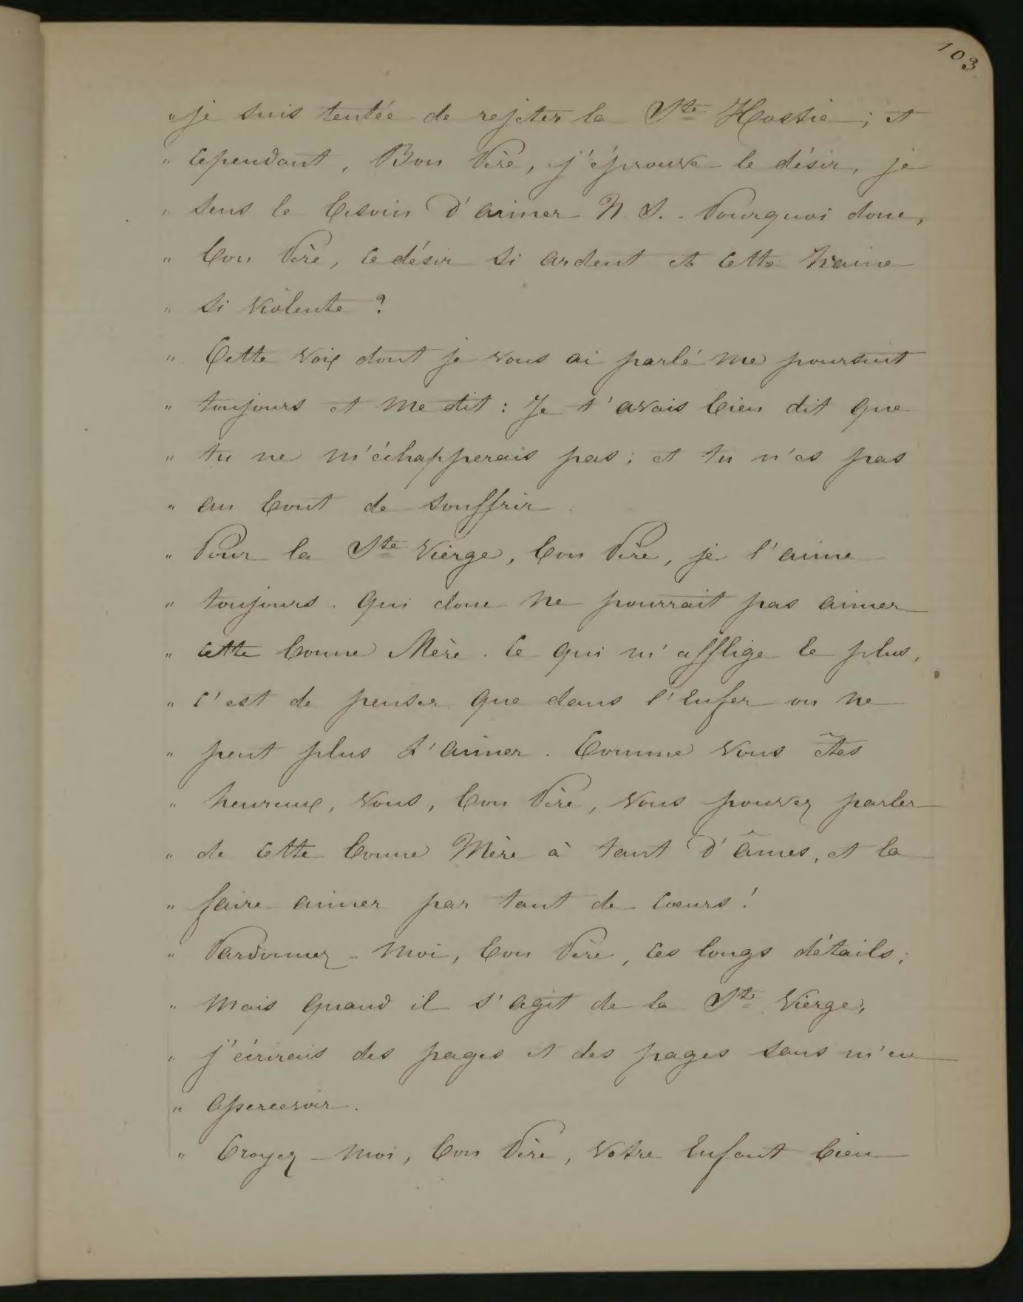 103
" je suis tentée de rejeter la Ste Hostie ; et
" cependant, Bon Père, j'éprouve le désir, je
" sens le besoin d'aimer N. S. . Pourquoi donc,
" bon Père, ce désir si ardent et cette haine
" si violente ?
" Cette voix dont je vous ai parlé me poursuit
" toujours et me dit : Je t'avais bien dit que
" tu ne m'échapperais pas ; et tu n'es pas
" au bout de souffrir .
" Pour la Ste Vierge, bon Père, je l'aime
" toujours . Qui donc ne pourrait pas aimer
" cette bonne Mère . Ce qui m'afflige le plus,
" c'est de penser que dans l'Enfer on ne
" peut plus L'aimer . Comme vous êtes
" heureux, vous, bon Père, vous pouvez parler
" de cette bonne Mère à tant d'âmes, et la
" faire aimer par tant de cœurs !
" Pardonnez - moi, bon Père, ces longs détails ;
" mais quand il s'agit de la Ste Vierge,
" j'écrirais des pages et des pages sans m'en
" apercevoir .
" Croyez - moi, bon Père, votre Enfant bien